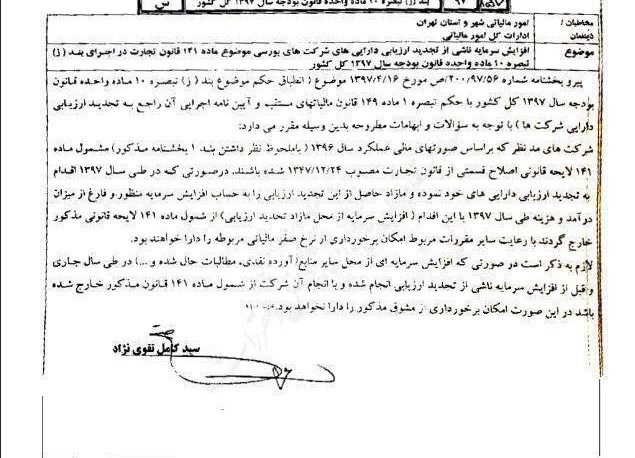 ۹۷
بند (ز) تبصره ۱۰ ماده واحده قانون بودجه سال ۱۳۹۷ کل کشور
س
مخاطبان /
ذینفعان
امور مالیاتی شهر و استان تهران
ادارات کل امور مالیاتی
موضوع
افزایش سرمایه ناشی از تجدید ارزیابی دارایی های شرکت های بورسی موضوع ماده ۱۴۱ قانون تجارت در اجرای بند (ز)
تبصره ۱۰ ماده واحده قانون بودجه سال ۱۳۹۷ کل کشور
پیرو بخشنامه شماره ۲۰۰/۹۷/۵۶/ص مورخ ۱۳۹۷/۴/۱۶ موضوع ( انطباق حکم موضوع بند ( ز) تبصره ۱۰ ماده واحده قانون
بودجه سال ۱۳۹۷ کل کشور با حکم تبصره ۱ ماده ۱۴۹ قانون مالیاتهای مستقیم و آیین نامه اجرایی آن راجع به تجدید ارزیابی
دارایی شرکت ها ) با توجه به سؤالات و ابهامات مطروحه بدین وسیله مقرر می دارد:
شرکت های مد نظر که براساس صورتهای مالی عملکرد سال ۱۳۹۶ (باملحوظ نظر داشتن بند ۱ بخشنامه مذکور) مشمول ماده
۱۴۱ لایحه قانونی اصلاح قسمتی از قانون تجارت مصوب ۱۳۴۷/۱۲/۲۴ شده باشند، درصورتی که در طی سال ۱۳۹۷ اقدام
به تجدید ارزیابی دارایی های خود نموده و مازاد حاصل از این تجدید ارزیابی را به حساب افزایش سرمایه منظور و فارغ از میزان
درآمد و هزینه طی سال ۱۳۹۷ با این اقدام ( افزایش سرمایه از محل مازاد تجدید ارزیابی) از شمول ماده ۱۴۱ لایحه قانونی مذکور
خارج گردند با رعایت سایر مقررات مربوط امکان برخورداری از نرخ صفر مالیاتی مربوطه را دارا خواهند بود.
لازم به ذکر است در صورتی که افزایش سرمایه ای از محل سایر منابع( آورده نقدی، مطالبات حال شده و ...) در طی سال جاری
و قبل از افزایش سرمایه ناشی از تجدید ارزیابی انجام شده و با انجام آن شرکت از شمول ماده ۱۴۱ قانون مذکور خارج شده
باشد در این صورت امکان برخورداری از مشوق مذکور را دارا نخواهد بود.
سید کامل تقوی نژاد